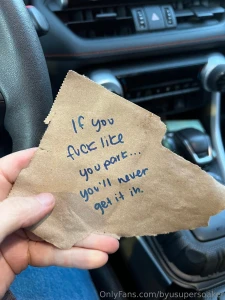 If you
fuck like
you park...
you'll never
get it in.
OnlyFans.com/byusupersoaker